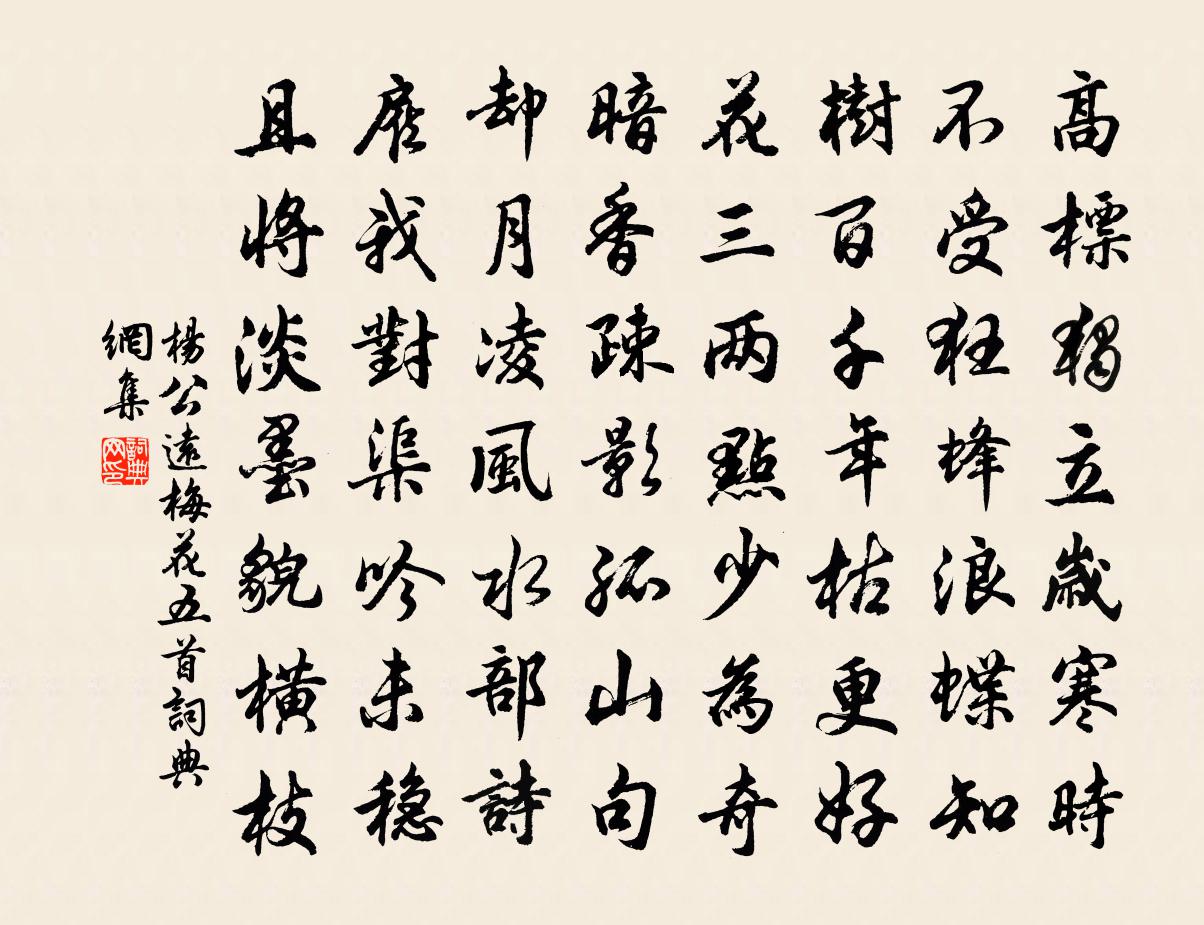 高標獨立歲寒時
不受狂蜂浪蝶知
樹百千年枯更好
花三两點少為奇
暗香疎影孤山句
却月凌風水部詩
顧我對渠吟未穩
且將淡墨貌橫枝
楊公遠梅花五首詞典
網集
詞典网印